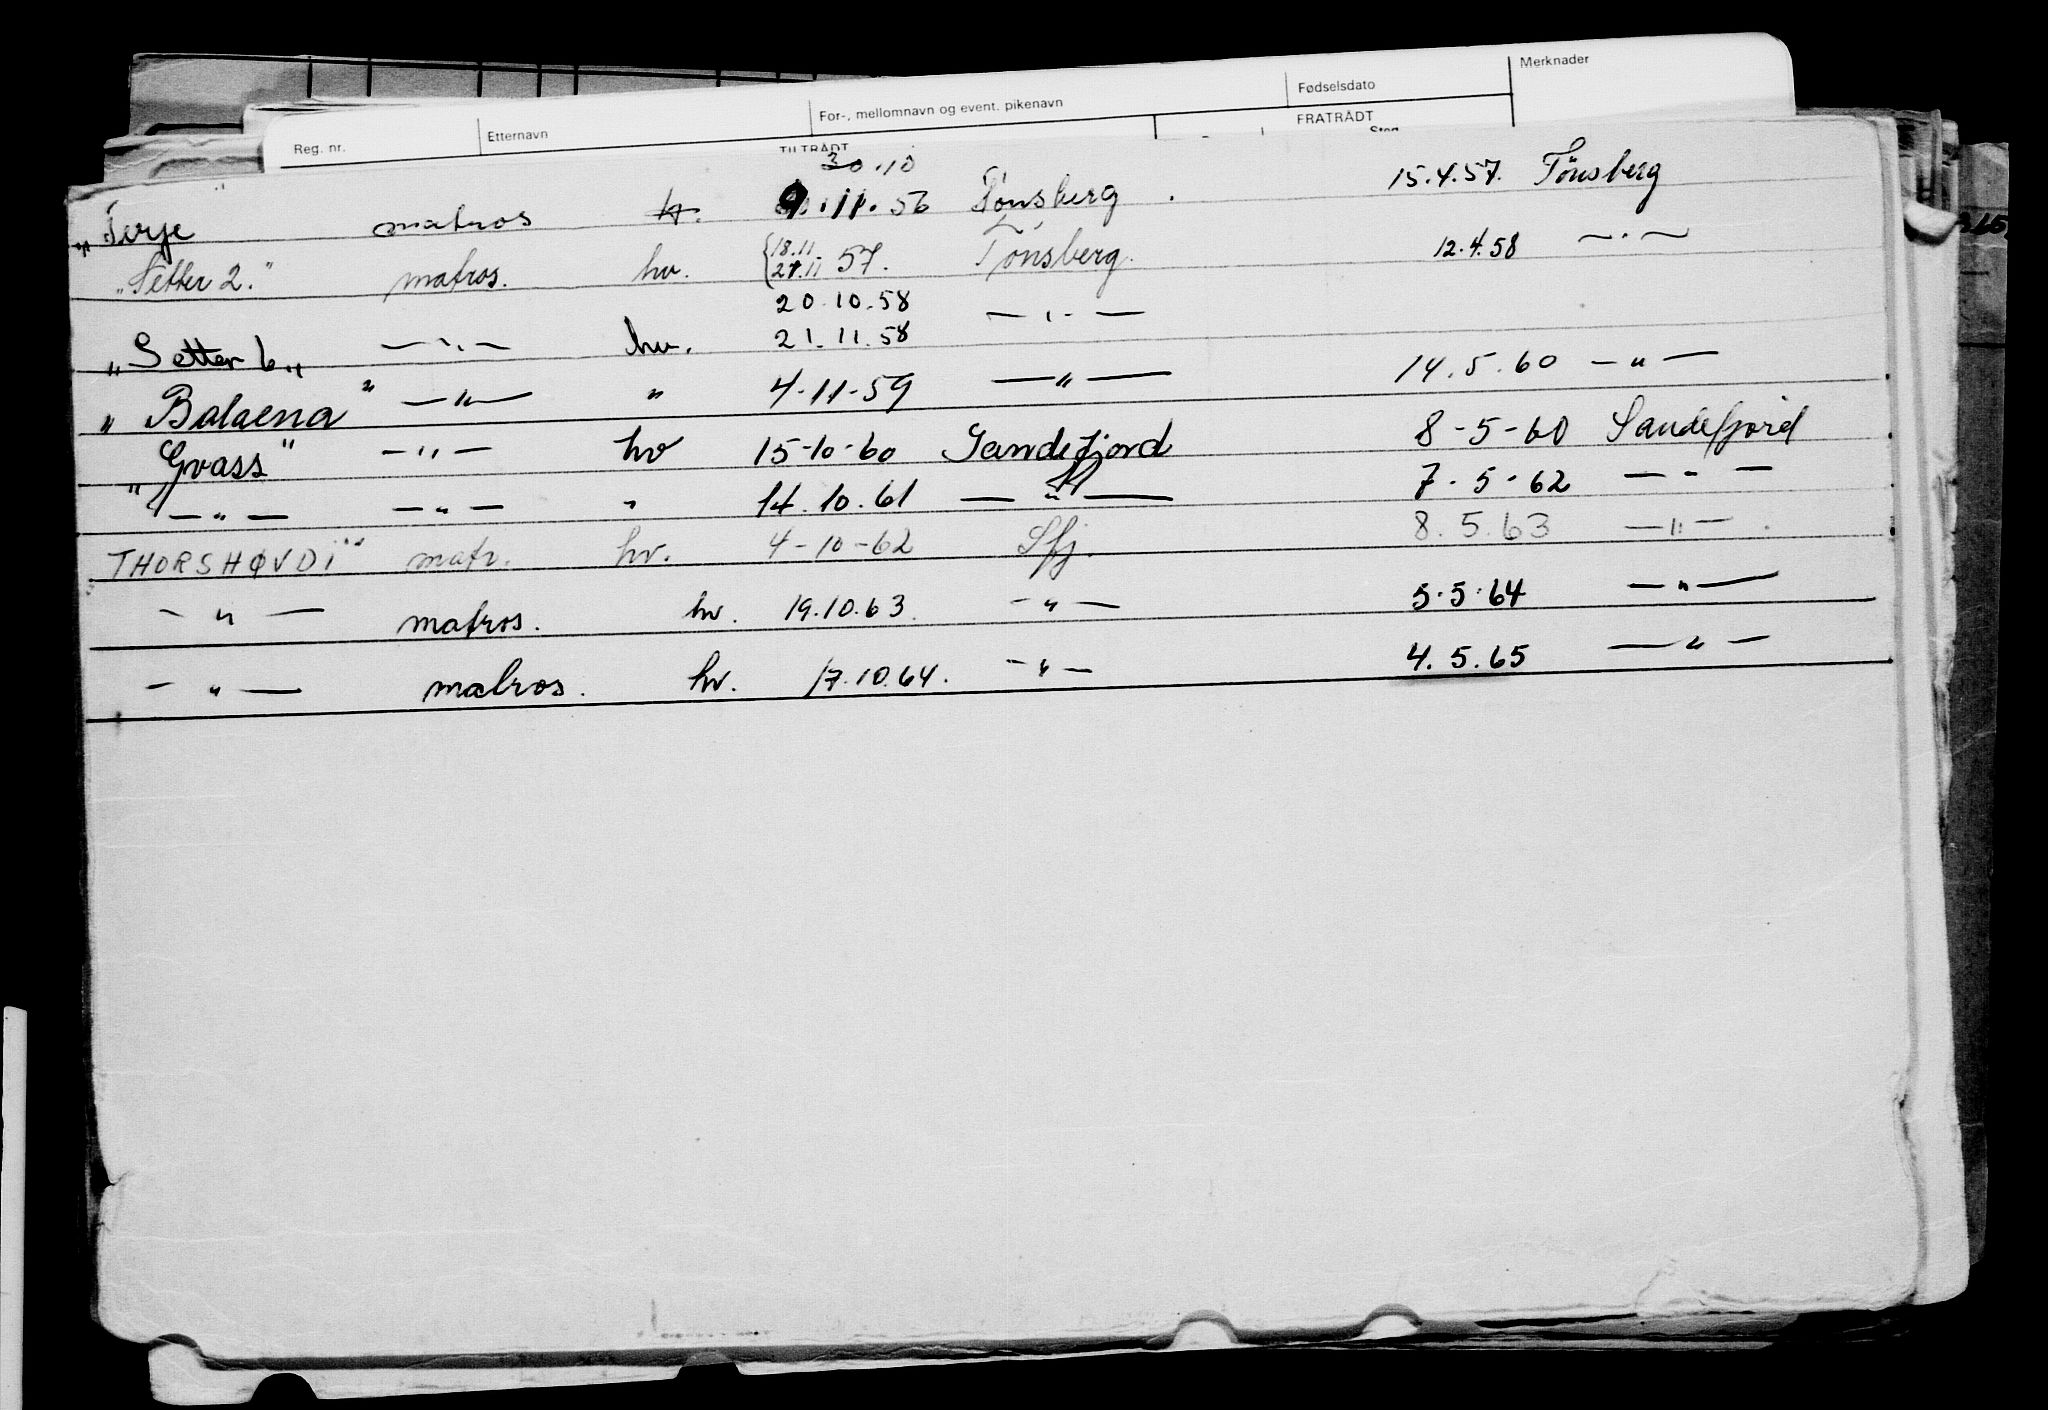 Merknader
Reg. nr. Etternavn For-, mellomnavn og event. pikenavn Fødselsdato
TILTRÅDT FRATRÅDT
30.10
"Terje" matros h. 9.11.56 Tönsberg. 15.4.57. Tönsberg
"Setter 2." matros. hv. {18.11 21.11 57. Tönsberg. 12.4.58 — " —
20.10.58
"Setter 6" — " — hv. 21.11.58 — " —
"Balaena" — " — " 4-11-59 — " — 14.5.60 — " —
"Gvass" — " — hv 15-10-60 Sandefjord 8-5-60 Sandefjord
— " — — " — " 14.10.61 — " — 7-5-62 — " —
THORSHØVDI" matr. hv. 4-10-62 Sfj. 8.5.63 — " —
— " — matros. hv. 19.10.63. — " — 5.5.64 — " —
— " — matros. hv. 17.10.64. — " — 4.5.65 — " —